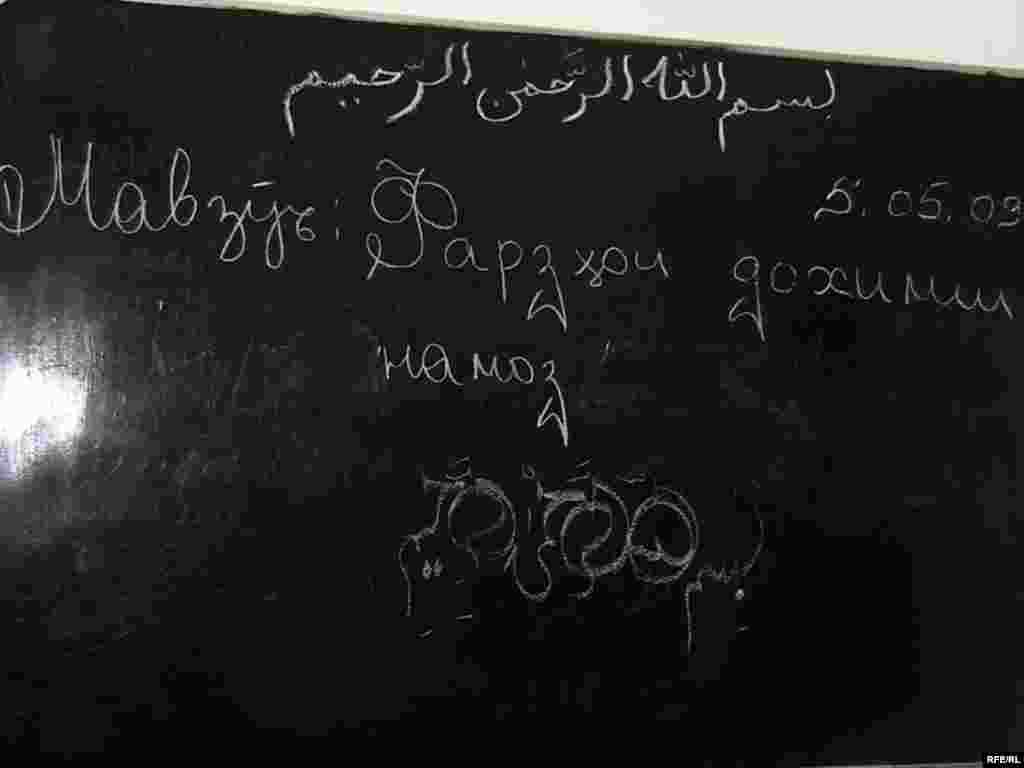 بسم الله الرَّحمٰن الرّحيم
5.05.09
Мавзӯъ: Фарзҳои дохили
намоз
بسم
RFE/RL